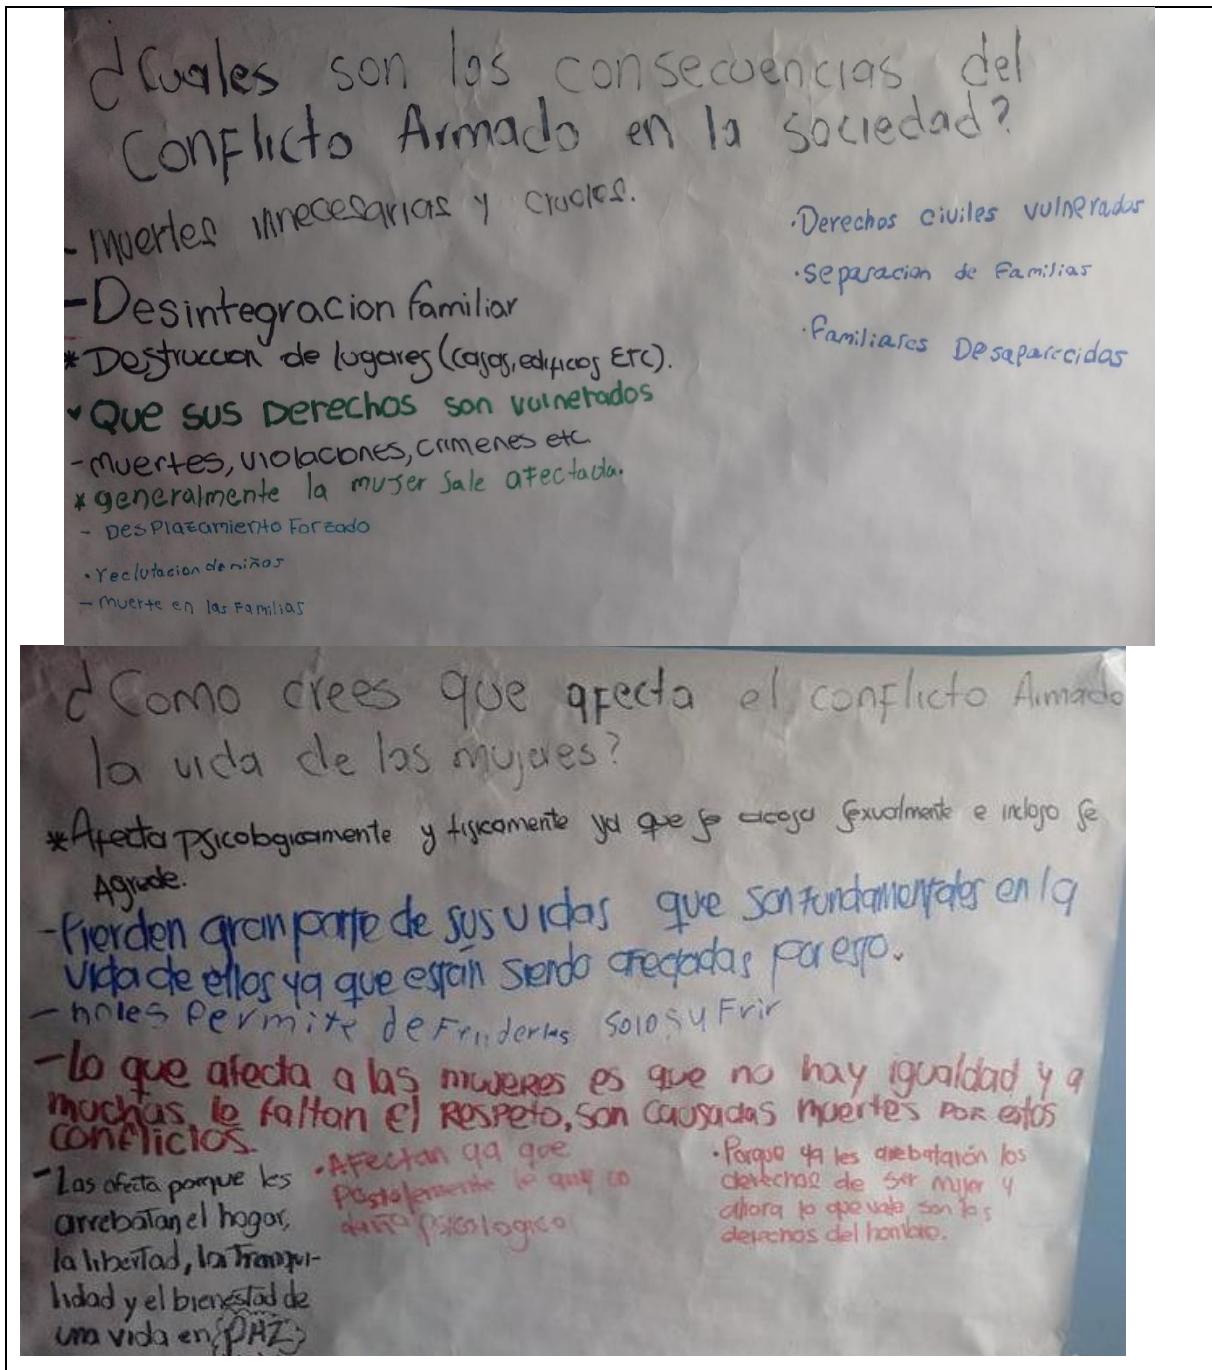 ¿Cuales son las consecuencias del
Conflicto Armado en la sociedad?
- muertes innecesarias y crueles.
- Desintegracion familiar
* Destruccion de lugares (casas, edificos ETC).
• Que sus Derechos son vulnerados
- muertes, violaciones, crimenes etc.
* generalmente la mujer sale afectada.
- Desplazamiento Forzado
• reclutacion de niños
- muerte en las Familias
• Derechos civiles vulnerados
• separacion de Familias
• Familiares Desaparecidos
¿Como crees que afecta el conflicto Armado
la vida de las mujeres?
* Afecta psicologicamente y fisicamente ya que se acosa sexualmente e incluso se
Agrede.
- Pierden gran parte de sus vidas que son fundamentales en la
vida de ellas ya que están siendo afectadas por esto.
- no les Permite defenderlas solo sufrir
- Lo que afecta a las mujeres es que no hay igualdad y a
muchas le faltan el Respeto, son causadas muertes por estos
conflictos.
- Las afecta porque les
arrebatan el hogar,
la libertad, la Tranqui-
lidad y el bienestad de
una vida en PAZ
• Afectan ya que
daño psicologico
• Porque ya les arebatarón los
derechos de ser mujer y
ahora lo que vale son los
derechos del hombre.